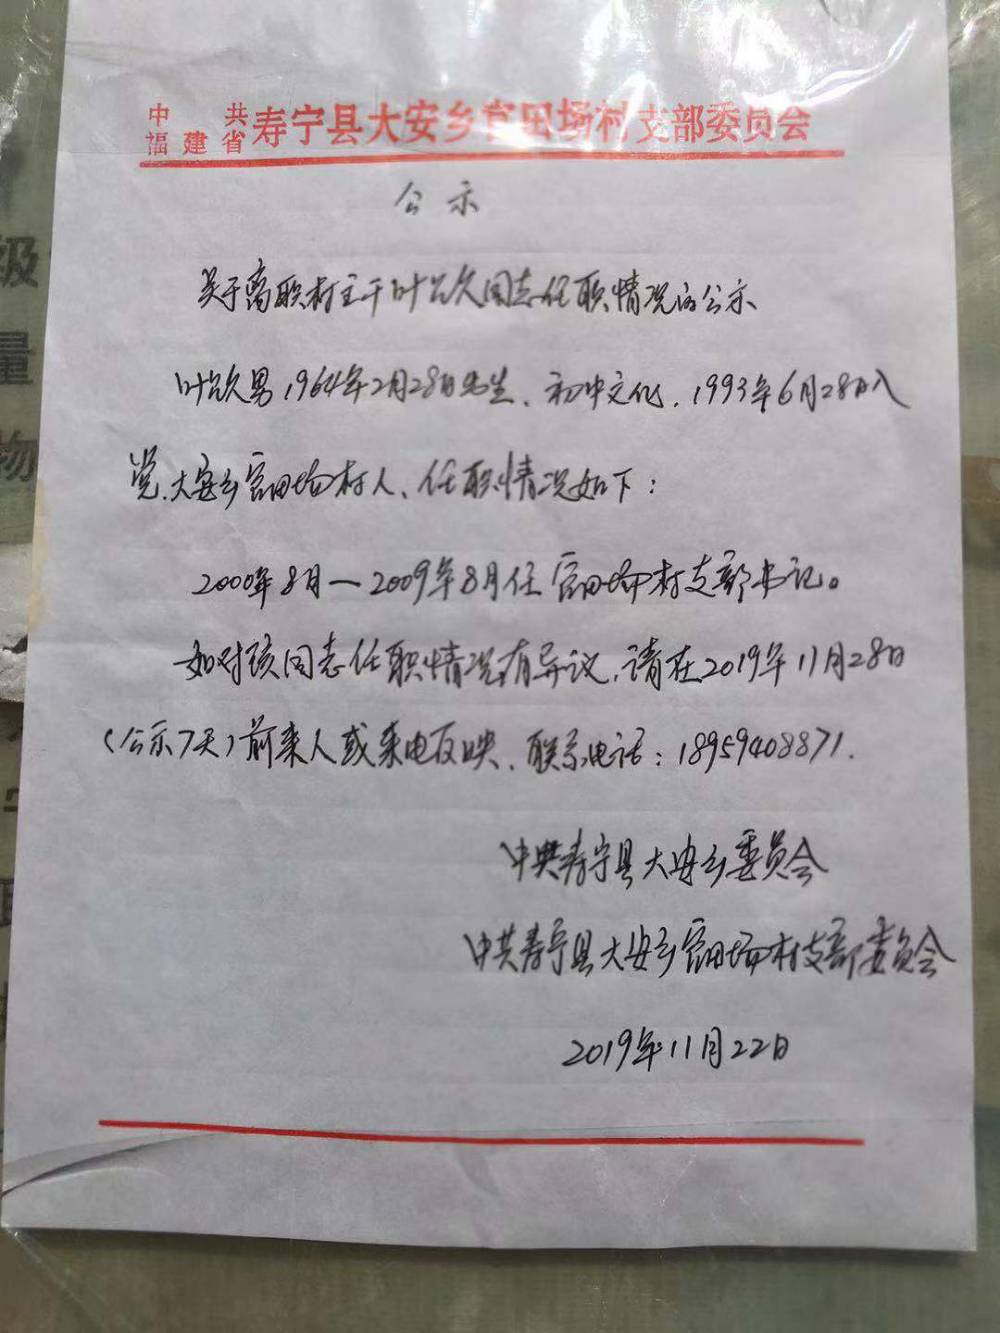 中共福建省寿宁县大安乡官田场村支部委员会
公示
关于离职村主干叶允久同志任职情况的公示
叶允久男1964年2月28日出生、初中文化、1993年6月28日入
党、大安乡官田场村人、任职情况如下:
2000年8月—2009年8月任官田场村支部书记。
如对该同志任职情况有异议,请在2019年11月28日
(公示7天)前来人或来电反映、联系电话:18959408871.
中共寿宁县大安乡委员会
中共寿宁县大安乡官田场村支部委员会
2019年11月22日
级
量
物